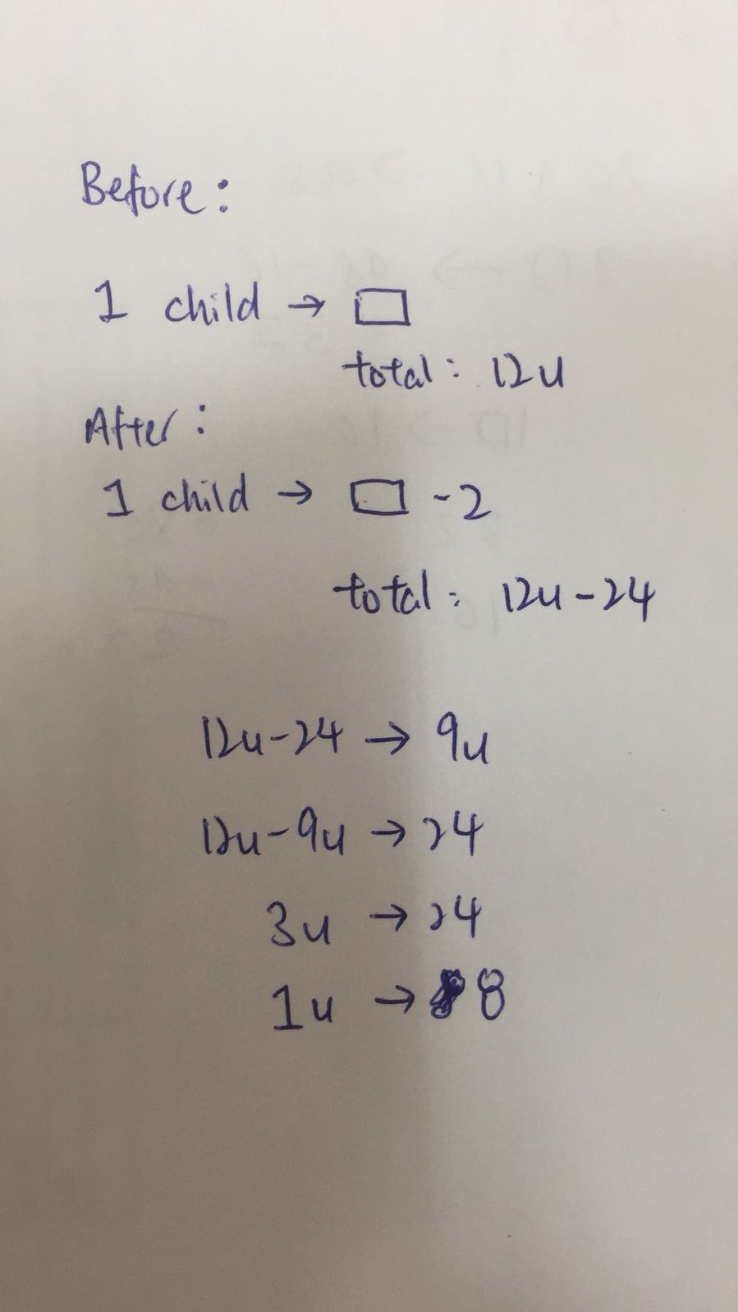 Before:
1 child → □
total: 12u
After:
1 child → □ -2
total: 12u-24
12u-24 → 9u
12u-9u → 24
3u → 24
1u → 8